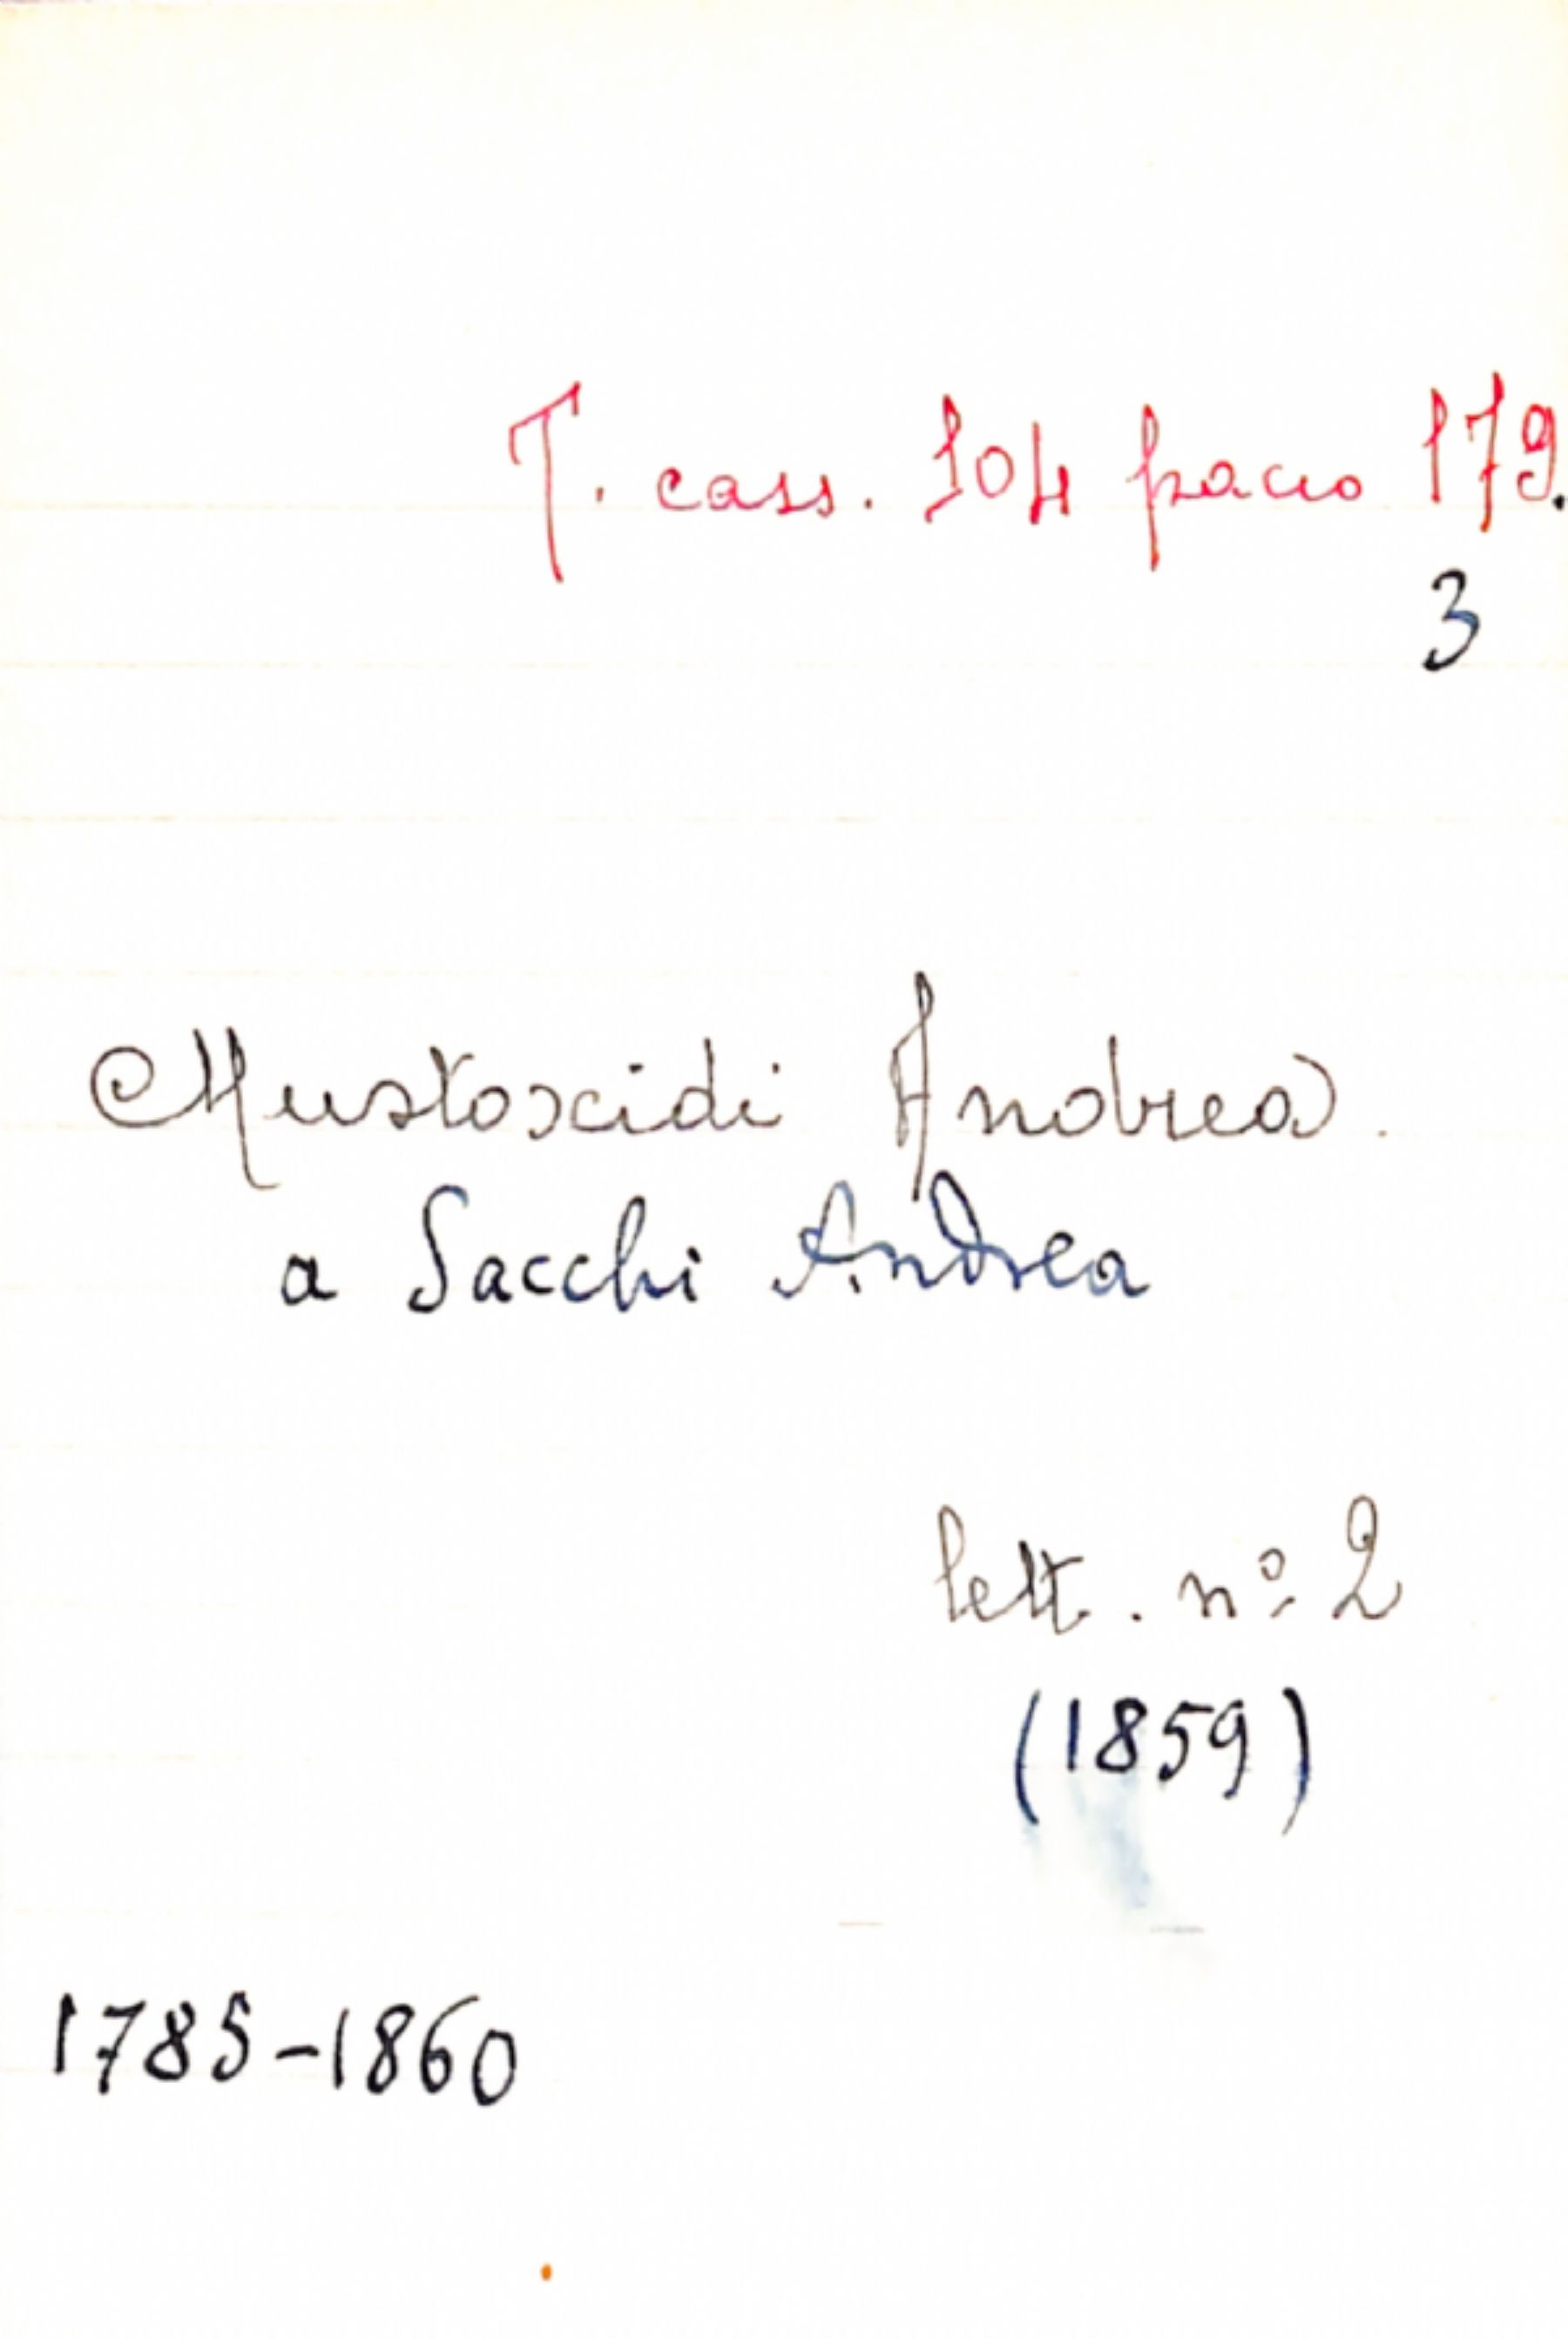 T. cass. 104 pacco 179.
3
Mustoxidi Andrea.
a Sacchi Andrea
lett. nº 2
(1859)
1785-1860